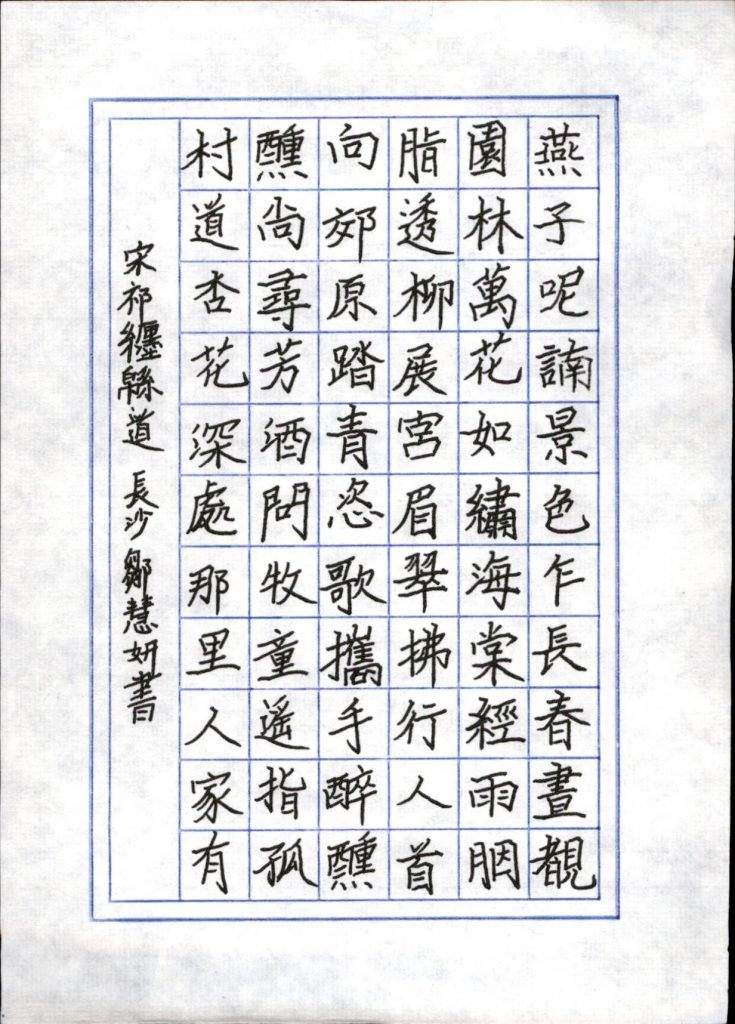 燕子呢諵景色乍長春晝覩
園林萬花如繡海棠經雨胭
脂透柳展宮眉翠拂行人首
向郊原踏青恣歌攜手醉醺
醺尚尋芳酒問牧童遙指孤
村道杏花深處那里人家有
宋祁纏緜道 長沙鄒慧妍書